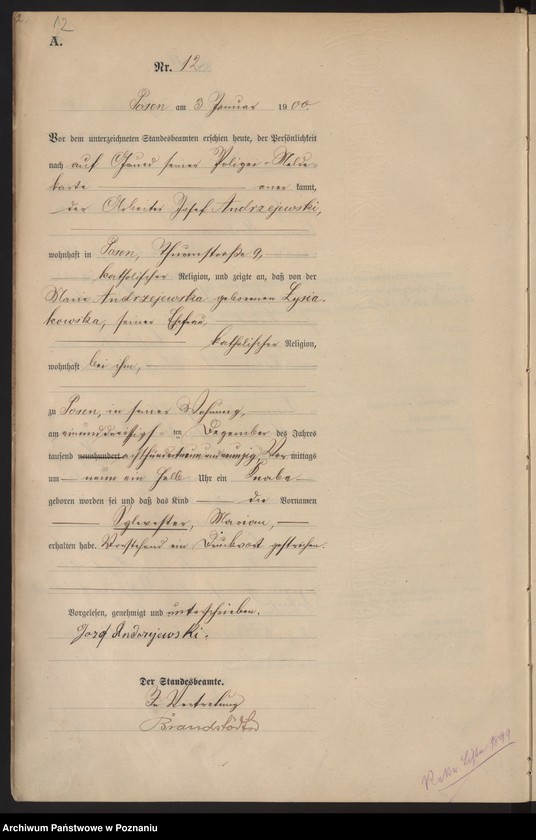 12
A.
Nr. 12
Posen am 3 Januar 1900.
Vor dem unterzeichneten Standesbeamten erschien heute, der Persönlichkeit
nach auf Grund seiner Polizei-Melde-
karte anerkannt,
der Arbeiter Josef Andrzejewski,
wohnhaft in Posen, Thurmstraße 9,
katholischer Religion, und zeigte an, daß von der
Maria Andrzejewska geborenen Lysia-
kowska, seiner Ehefrau
katholischer Religion,
wohnhaft bei ihm,
zu Posen, in seiner Wohnung,
am einunddreißigsten Dezember des Jahres
tausend neunhundert achthundertneunundneunzig Vormittags
um neun ein halb Uhr ein Knabe
geboren worden sei und daß das Kind die Vornamen
Sylvester, Marian,
erhalten habe. Vorstehend ein Druckwort gestrichen.
Vorgelesen, genehmigt und unterschrieben.
Jozef Andrzejewski.
Der Standesbeamte.
In Vertretung
1899
Archiwum Państwowe w Poznaniu